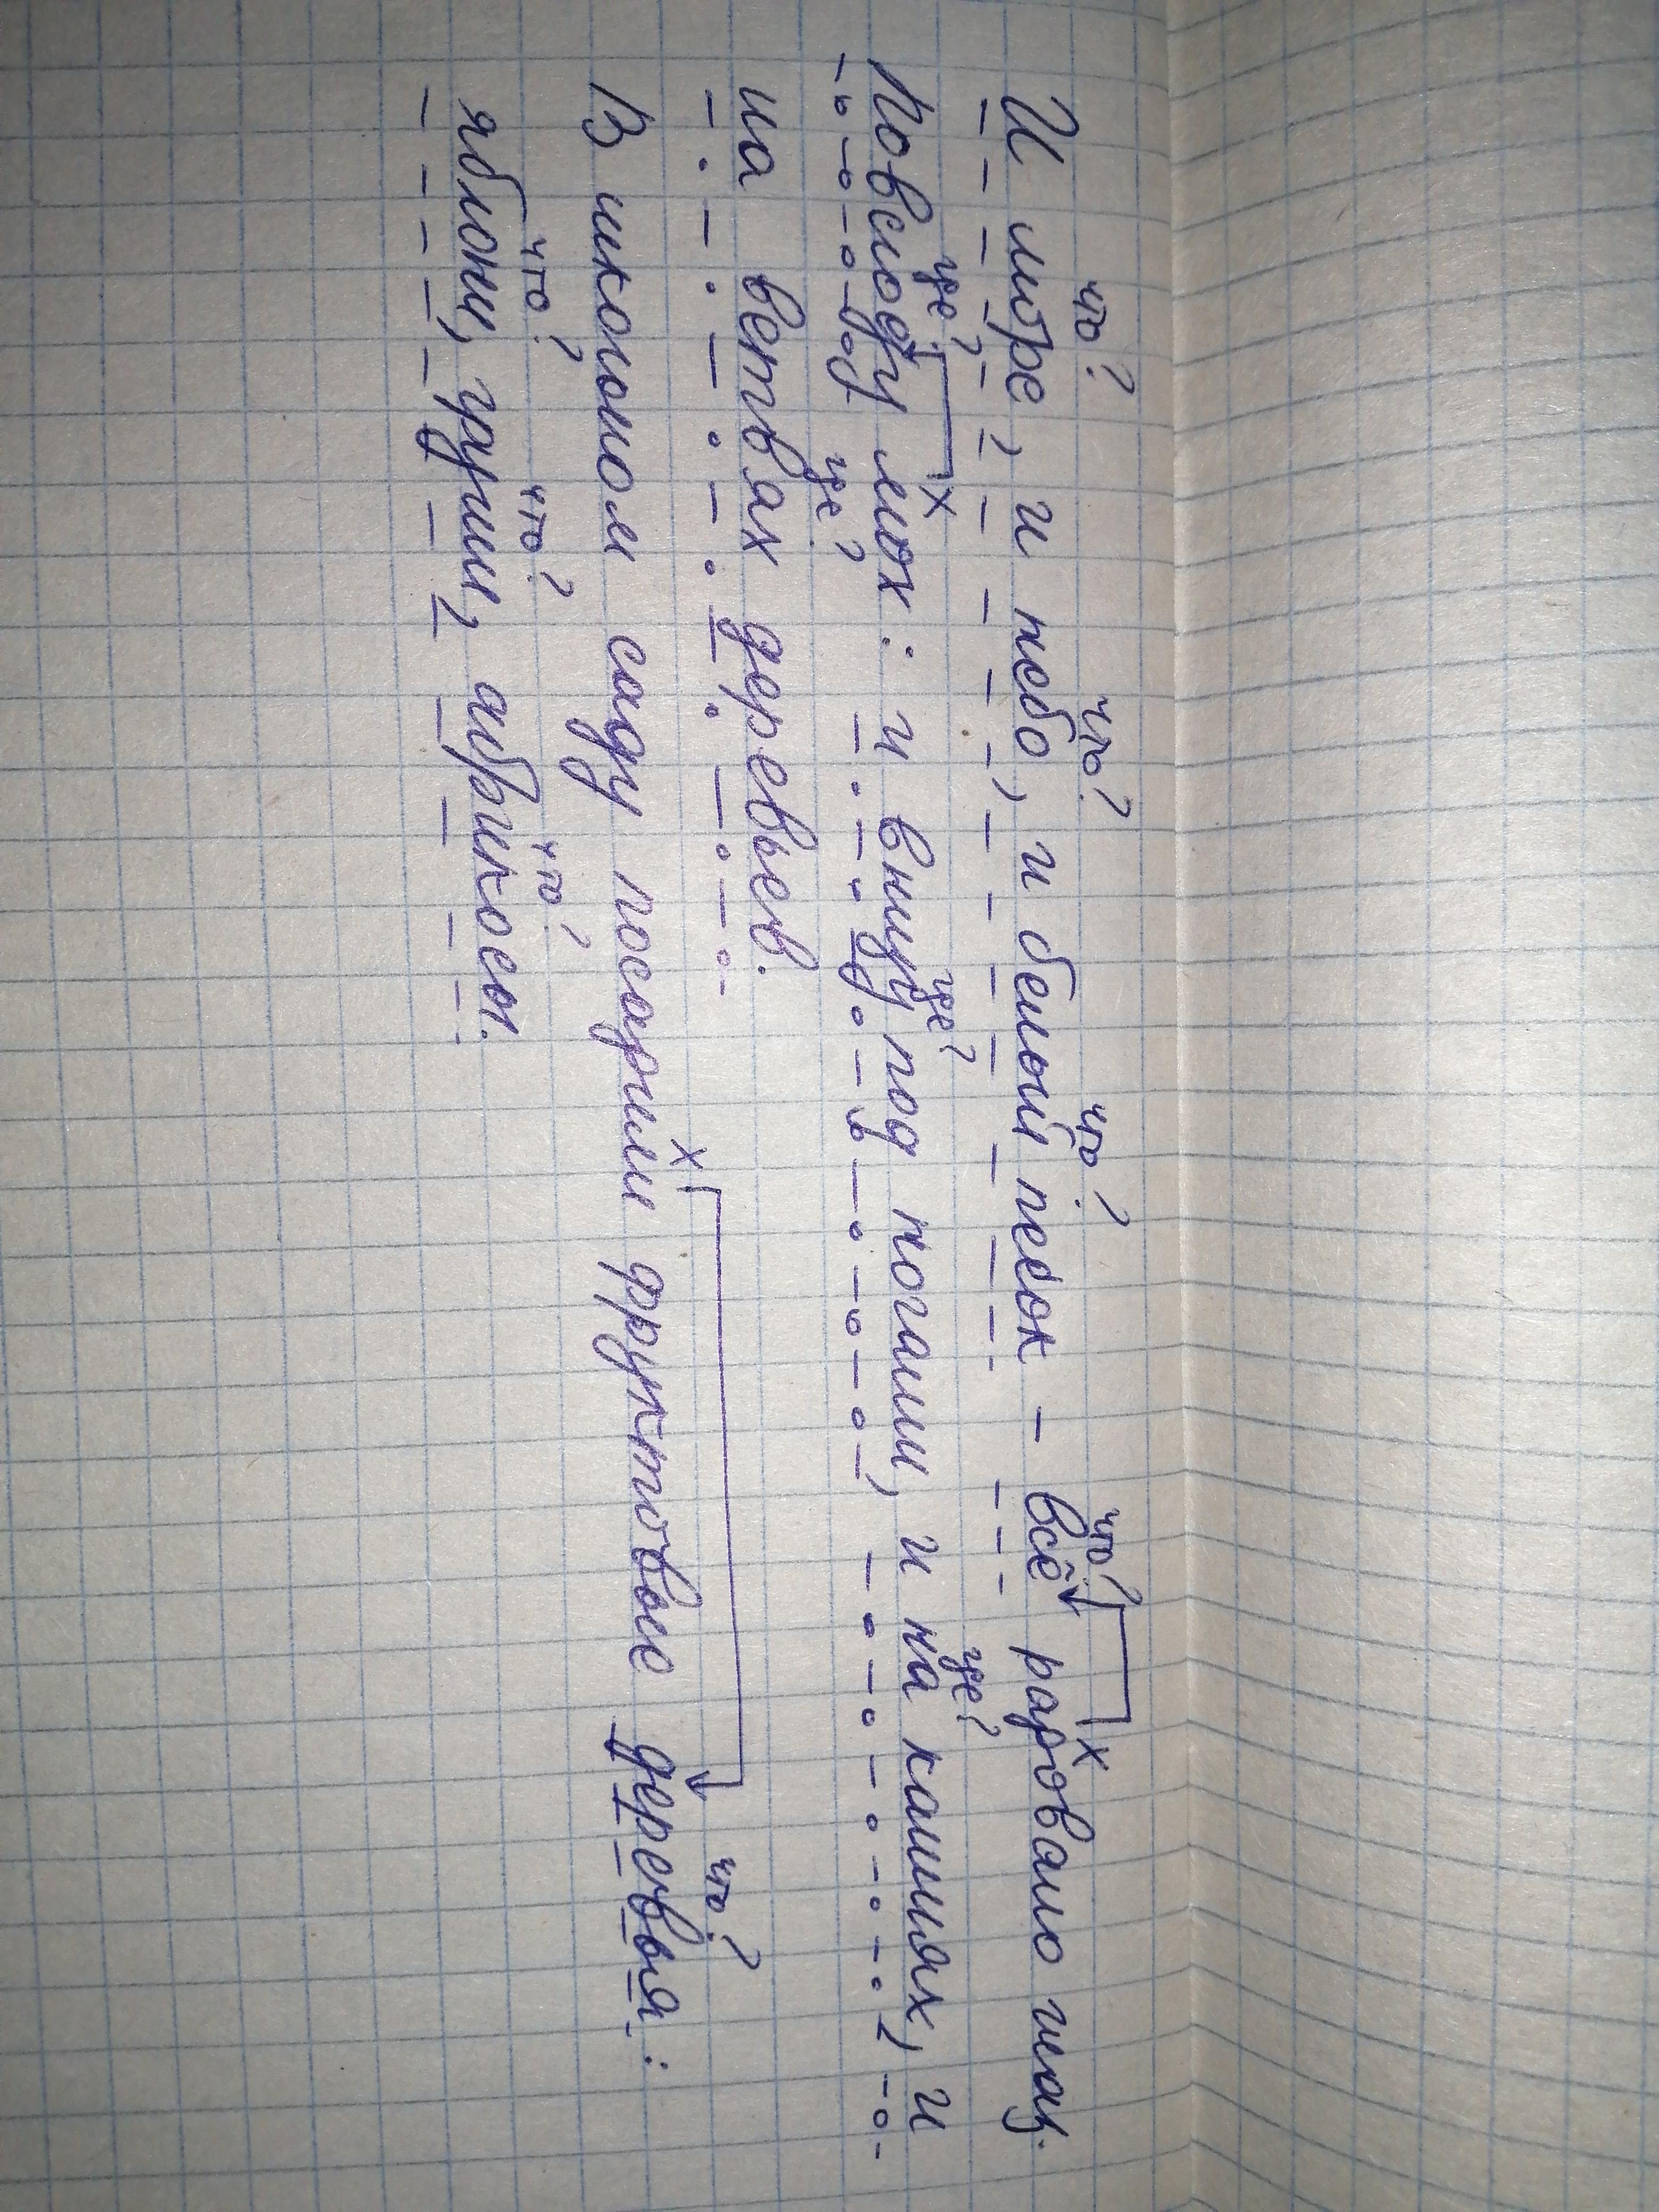 что? что? что? что? х
И море, и небо, и белый песок – всё радовало глаз.
где? х где? где?
Повсюду мох: и внизу под ногами, и на камнях, и
где?
на ветвях деревьев.
х что?
В школьном саду посадили фруктовые деревья:
что? что? что?
яблони, груши, абрикосы.